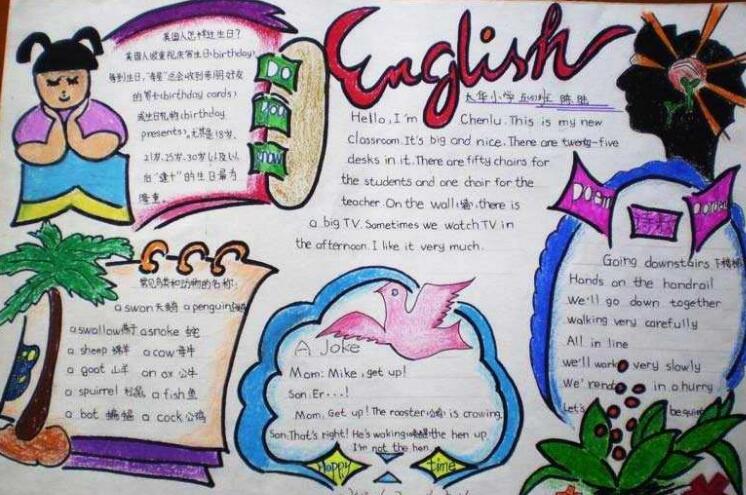 English
大华小学
英国人怎样过生日?
英国人很重视庆祝生日(birthday),
每到生日,"寿星"总会收到亲朋好友
的贺卡(birthday cards)
或生日礼物(birthday
presents)。尤其是18岁、
21岁、25岁、30岁以及以
后"逢十"的生日最为
隆重。
DO
YOU
know
Hello, I'm Chenlu. This is my new
classroom. It's big and nice. There are twenty-five
desks in it. There are fifty chairs for
the students and one chair for the
teacher. On the wall(墙), there is
a big TV. Sometimes we watch TV in
the afternoon. I like it very much.
常见鸟类和动物的名称:
a swan 天鹅 a penguin
a swallow 燕子 a snake 蛇
a sheep 绵羊 a cow 奶牛
a goat 山羊 an ox 公牛
a spuirrel 松鼠 a fish 鱼
a bat 蝙蝠 a cock 公鸡
A Joke
Mom: Mike, get up!
Son: Er···!
Mom: Get up! The rooster(公鸡) is crowing.
Son: That's right! He's waking the hen up.
I'm not the hen.
Happy time
Going downstairs 下楼梯
Hands on the handrail
We'll go down together
walking very carefully
All in line
we'll work very slowly
We' in a hurry
Let's